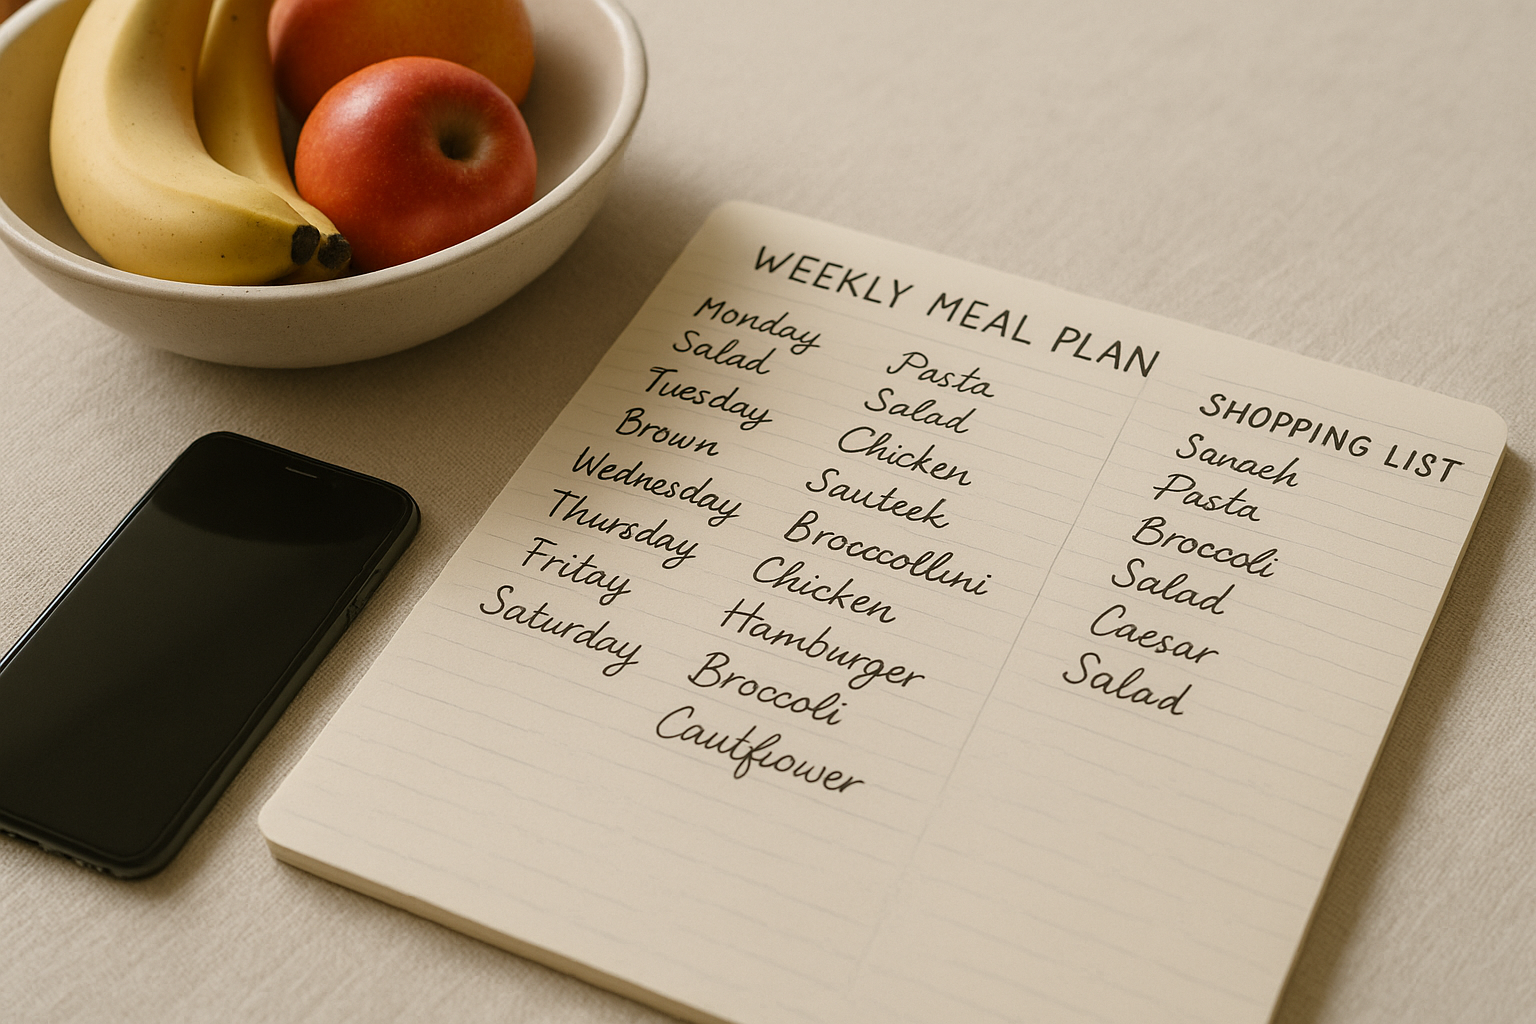 WEEKLY MEAL PLAN
Monday
Salad
Tuesday
Brown
Wednesday
Thursday
Fritay
Saturday
Pasta
Salad
Chicken
Sauteek
Brocccollini
Chicken
Hamburger
Broccoli
Cautfiower
SHOPPING LIST
Sanaeh
Pasta
Broccoli
Salad
Caesar
Salad